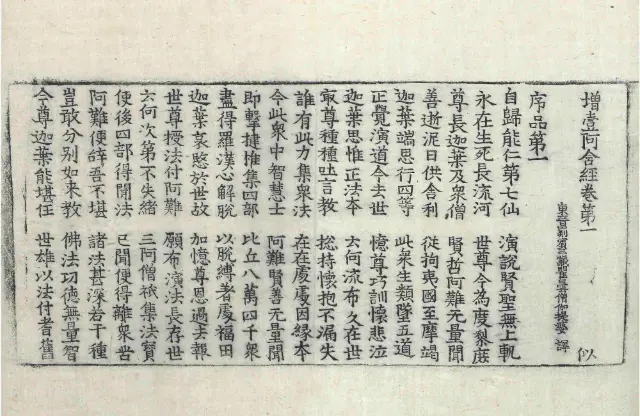 增壹阿含經卷第一 似
東晉罽賓三藏瞿曇僧伽提婆 譯
序品第一
自歸能仁第七仙 演說賢聖無上軌
永在生死長流河 世尊今為度黎庶
尊長迦葉及衆僧 賢哲阿難無量聞
善逝泥曰供舍利 從拘夷國至摩竭
迦葉端思行四等 此衆生類墜五道
正覺演道今去世 憶尊巧訓懷悲泣
迦葉思惟正法本 云何流布久在世
㝡尊種種吐言教 揔持懷抱不漏失
誰有此力集衆法 在在處處因緣本
今此衆中智慧士 阿難賢善無量聞
即擊揵椎集四部 比丘八萬四千衆
盡得羅漢心解脫 以脫縛著處福田
迦葉哀愍於世故 加憶尊恩過去報
世尊授法付阿難 願布演法長存世
云何次第不失緒 三阿僧祇集法寶
使後四部得聞法 已聞便得離衆苦
阿難便辭吾不堪 諸法甚深若干種
豈敢分別如來教 佛法功德無量智
今尊迦葉能堪任 世雄以法付耆舊